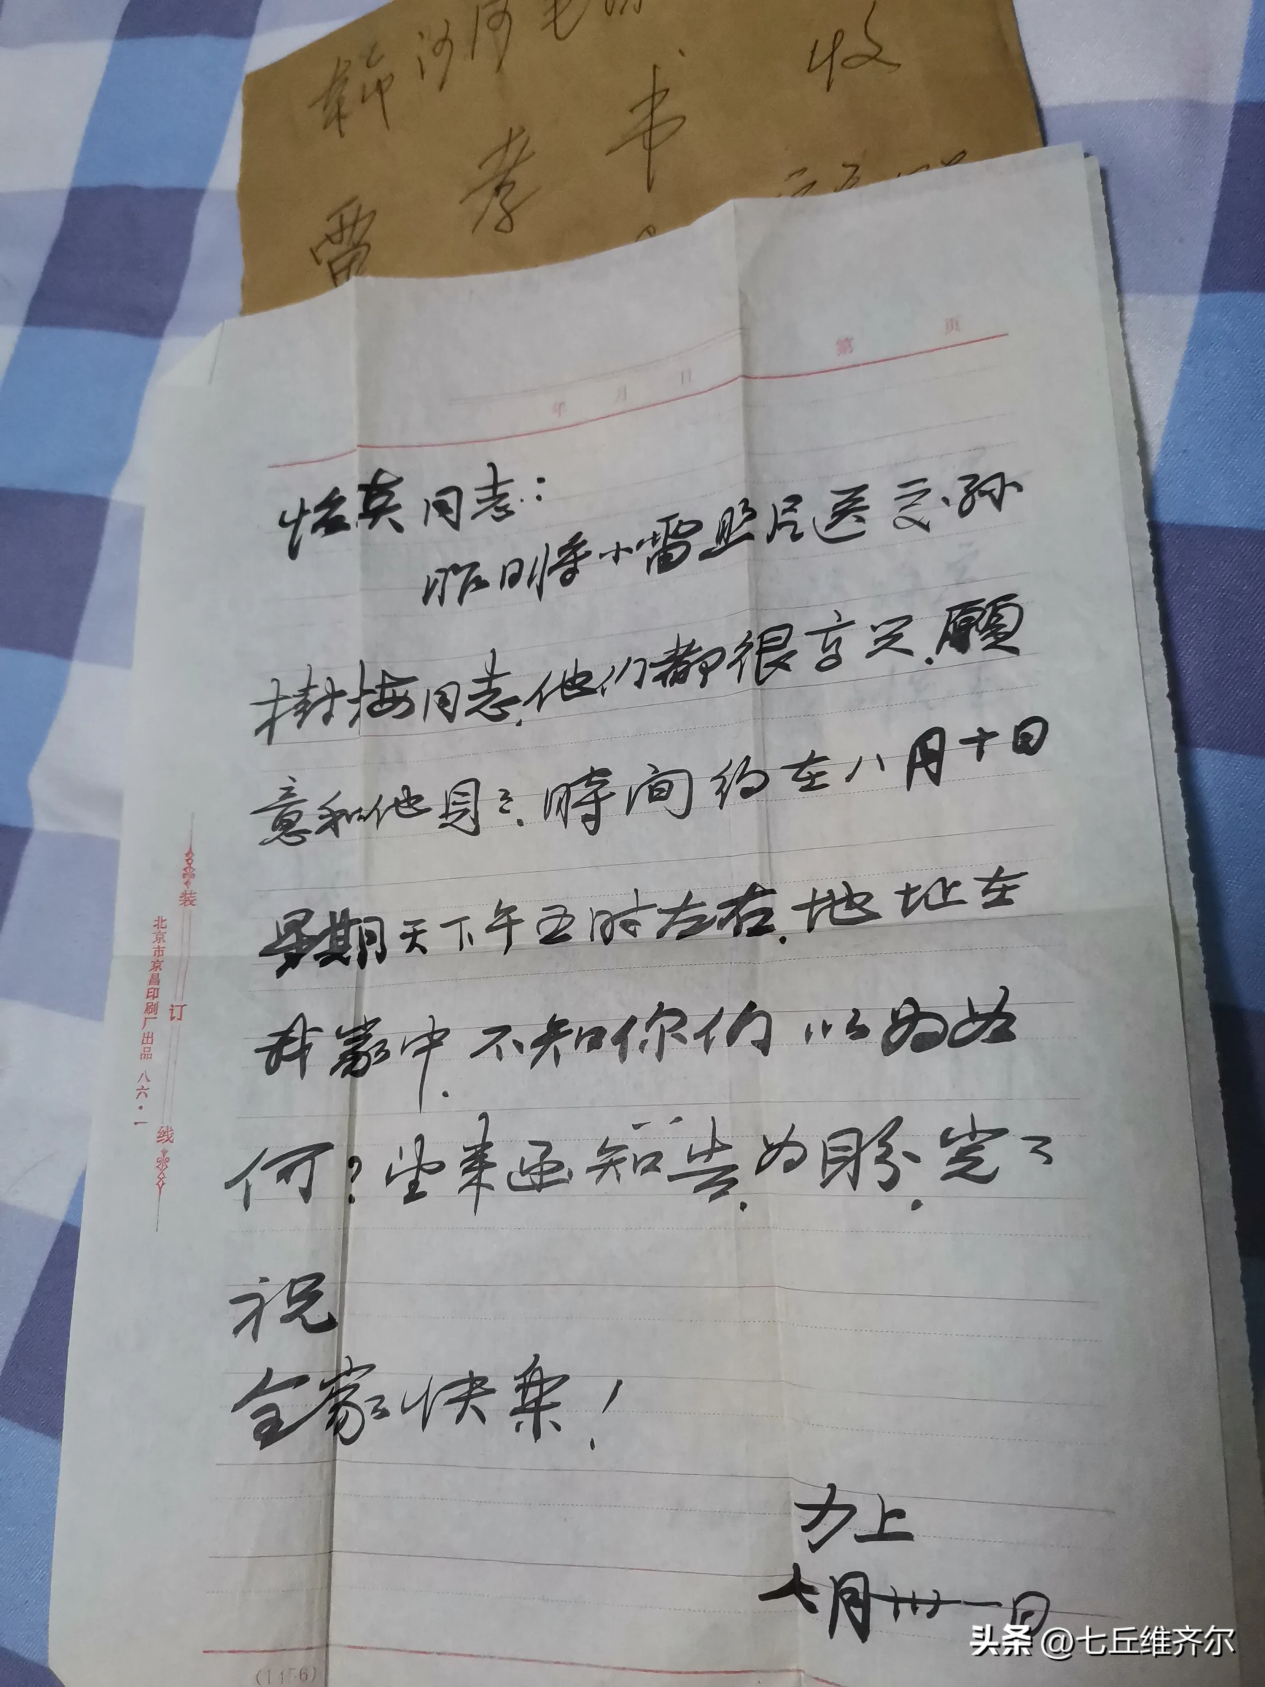 收
雷 孝 书
第 页
年 月 日
怡英同志：
昨日将小雷照片送交孙
树梅同志，他们都很高兴，願
意和他見見，時间约在八月十日
星期天下午五时左右，地址在
我家中，不知你们以为如
何？望来函知告，为盼，完了
祝
全家快乐！
力上
七月卅一日
装
订
线
北京市京昌印刷厂出品 八六·一
(1456)
头条 @七丘维齐尔